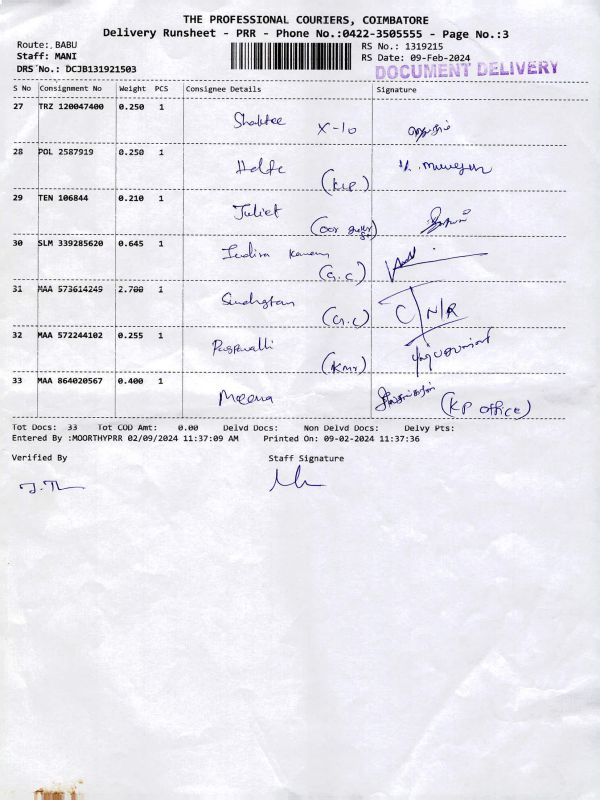 THE PROFESSIONAL COURIERS, COIMBATORE
Delivery Runsheet - PRR - Phone No.:0422-3505555 - Page No.:3
Route:. BABU
RS No.: 1319215
Staff: MANI
RS Date: 09-Feb-2024
DRS No.: DCJB131921503
DOCUMENT DELIVERY
S No Consignment No Weight PCS Consignee Details Signature
27 TRZ 120047400 0.250 1
X-10
28 POL 2587919 0.250 1
(KLP)
29 TEN 106844 0.210 1
Juliet
30 SLM 339285620 0.645 1
(G.C)
31 MAA 573614249 2.700 1
(G.C) C N/R
32 MAA 572244102 0.255 1
(KMR)
33 MAA 864020567 0.400 1
Meena (KP office)
Tot Docs: 33 Tot COD Amt: 0.00 Delvd Docs: Non Delvd Docs: Delvy Pts:
Entered By :MOORTHYPRR 02/09/2024 11:37:09 AM Printed On: 09-02-2024 11:37:36
Verified By Staff Signature